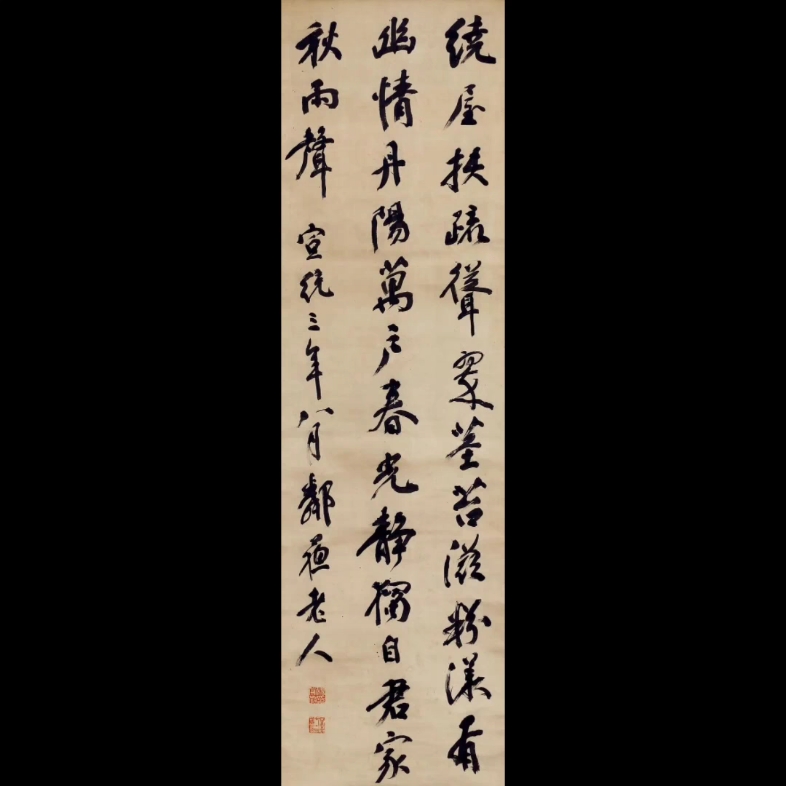 繞屋扶疏聳翠莖苔滋粉漾有
幽情丹陽萬戶春光靜獨自君家
秋雨聲 宣統三年八月鄰蘇老人